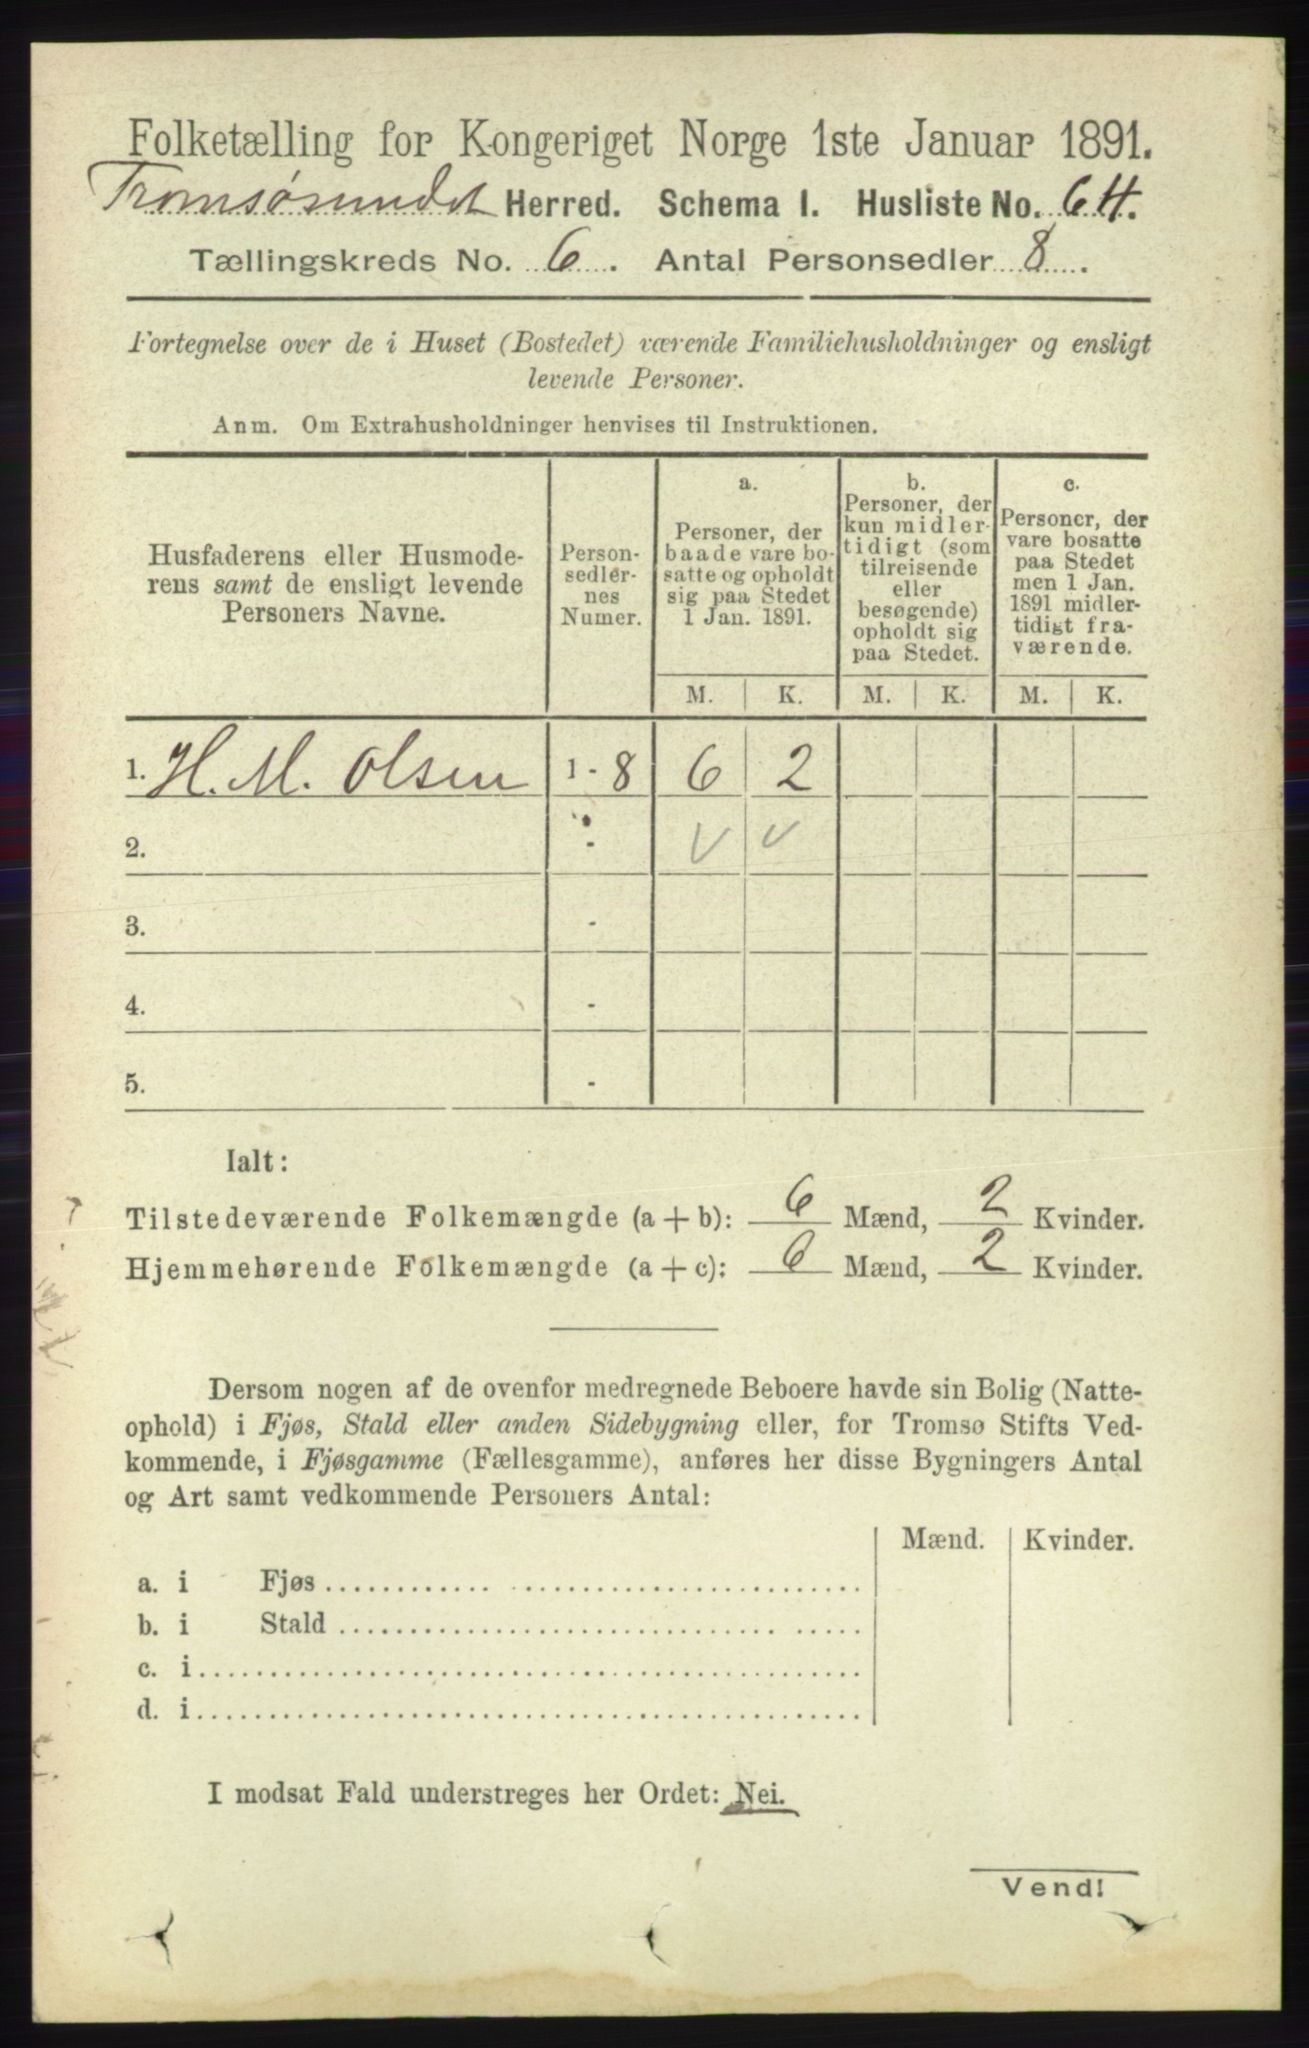 Folketælling for Kongeriget Norge 1ste Januar 1891.
Tromsøsundet Herred. Schema I. Husliste No. 64.
Tællingskreds No. 6. Antal Personsedler 8.
Fortegnelse over de i Huset (Bostedet) værende Familiehusholdninger og ensligt
levende Personer.
Anm. Om Extrahusholdninger henvises til Instruktionen.
Husfaderens eller Husmode-
rens samt de ensligt levende
Personers Navne.
Person-
sedler-
nes
Numer.
a.
Personer, der
baade vare bo-
satte og opholdt
sig paa Stedet
1 Jan. 1891.
b.
Personer, der
kun midler-
tidigt (som
tilreisende
eller
besøgende)
opholdt sig
paa Stedet.
c.
Personer, der
vare bosatte
paa Stedet
men 1 Jan.
1891 midler-
tidigt fra-
værende.
M. K. M. K. M. K.
1. H. M. Olsen 1 - 8 6 2
2. -
3. -
4. -
5. -
Ialt:
Tilstedeværende Folkemængde (a + b): 6 Mænd, 2 Kvinder.
Hjemmehørende Folkemængde (a + c): 6 Mænd, 2 Kvinder.
Dersom nogen af de ovenfor medregnede Beboere havde sin Bolig (Natte-
ophold) i Fjøs, Stald eller anden Sidebygning eller, for Tromsø Stifts Ved-
kommende, i Fjøsgamme (Fællesgamme), anføres her disse Bygningers Antal
og Art samt vedkommende Personers Antal:
Mænd. Kvinder.
a. i Fjøs
b. i Stald
c. i
d. i
I modsat Fald understreges her Ordet: Nei.
Vend!